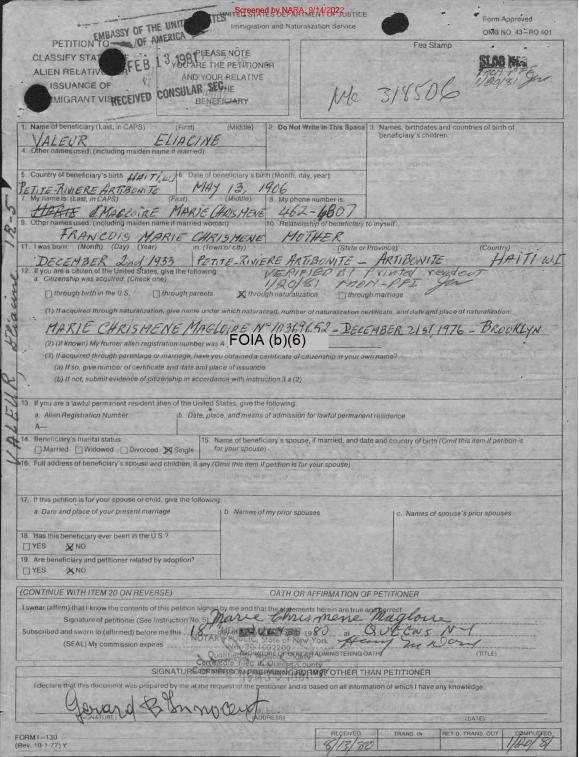 Screened by NARA, 9/14/2022
UNITED STATES DEPARTMENT OF JUSTICE
Immigration and Naturalization Service
Form Approved
OMB NO. 43-RO 401
EMBASSY OF THE UNITED STATES
OF AMERICA
FEB 13 1981
RECEIVED CONSULAR SEC.
PETITION TO
CLASSIFY STATUS
ALIEN RELATIVE
ISSUANCE OF
IMMIGRANT VISA
PLEASE NOTE
YOU ARE THE PETITIONER
AND YOUR RELATIVE
IS THE
BENEFICIARY
Fee Stamp
1/20/81
318506
1. Name of beneficiary (Last, in CAPS) (First) (Middle)
VALEUR ELIACINE
2. Do Not Write in This Space
3. Names, birthdates and countries of birth of beneficiary's children.
4. Other names used: (including maiden name if married)
5. Country of beneficiary's birth HAITI, WI
PETITE-RIVIERE ARTIBONITE
6. Date of beneficiary's birth (Month, day, year)
MAY 13, 1906
7. My name is: (Last, in CAPS) (First) (Middle)
MAGLOIRE MARIE CHRISMENE
8. My phone number is:
462-6807
9. Other names used: (including maiden name if married woman)
FRANCOIS MARIE CHRISMENE
10. Relationship of beneficiary to myself
MOTHER
11. I was born: (Month) (Day) (Year) in: (Town or city) (State or Province) (Country)
DECEMBER 2nd 1933 PETITE-RIVIERE ARTIBONITE - ARTIBONITE HAITI W.I
12. If you are a citizen of the United States, give the following:
VERIFIED BY Printed readout
1/20/81 FROM-PPI
a. Citizenship was acquired: (Check one)
through birth in the U.S. through parents X through naturalization through marriage
(1) If acquired through naturalization, give name under which naturalized, number of naturalization certificate, and date and place of naturalization:
MARIE CHRISMENE MAGLOIRE No 10369652 - DECEMBER 21st 1976 - BROOKLYN
(2) (If known) My former alien registration number was A
FOIA (b)(6)
(3) If acquired through parentage or marriage, have you obtained a certificate of citizenship in your own name?
(a) If so, give number of certificate and date and place of issuance
(b) If not, submit evidence of citizenship in accordance with instruction 3 a (2)
13. If you are a lawful permanent resident alien of the United States, give the following:
a. Alien Registration Number: b. Date, place, and means of admission for lawful permanent residence
A—
14. Beneficiary's marital status:
Married Widowed Divorced X Single
15. Name of beneficiary's spouse, if married, and date and country of birth (Omit this item if petition is for your spouse)
16. Full address of beneficiary's spouse and children, if any (Omit this item if petition is for your spouse)
17. If this petition is for your spouse or child, give the following:
a. Date and place of your present marriage
b. Names of my prior spouses
c. Names of spouse's prior spouses
18. Has this beneficiary ever been in the U.S.?
YES X NO
19. Are beneficiary and petitioner related by adoption?
YES X NO
(CONTINUE WITH ITEM 20 ON REVERSE)
OATH OR AFFIRMATION OF PETITIONER
I swear (affirm) that I know the contents of this petition signed by me and that the statements herein are true and correct.
Signature of petitioner (See Instruction No. 5) Marie Chrismene Magloire
Subscribed and sworn to (affirmed) before me this 18 1980 at QUEENS N-Y
NOTARY PUBLIC, State of New York
(SEAL) My commission expires
(SIGNATURE OF OFFICER ADMINISTERING OATH) (TITLE)
Certificate filed in Queens County
SIGNATURE OF PERSON PREPARING FORM IF OTHER THAN PETITIONER
I declare that this document was prepared by me at the request of the petitioner and is based on all information of which I have any knowledge.
Gerard B Innocent
(SIGNATURE) (ADDRESS) (DATE)
FORM I-130
(Rev. 10-1-77) Y
RECEIVED
8/13/80
TRANS. IN
RET'D. TRANS. OUT
COMPLETED
1/20/81
VALEUR, Eliacine IR-5